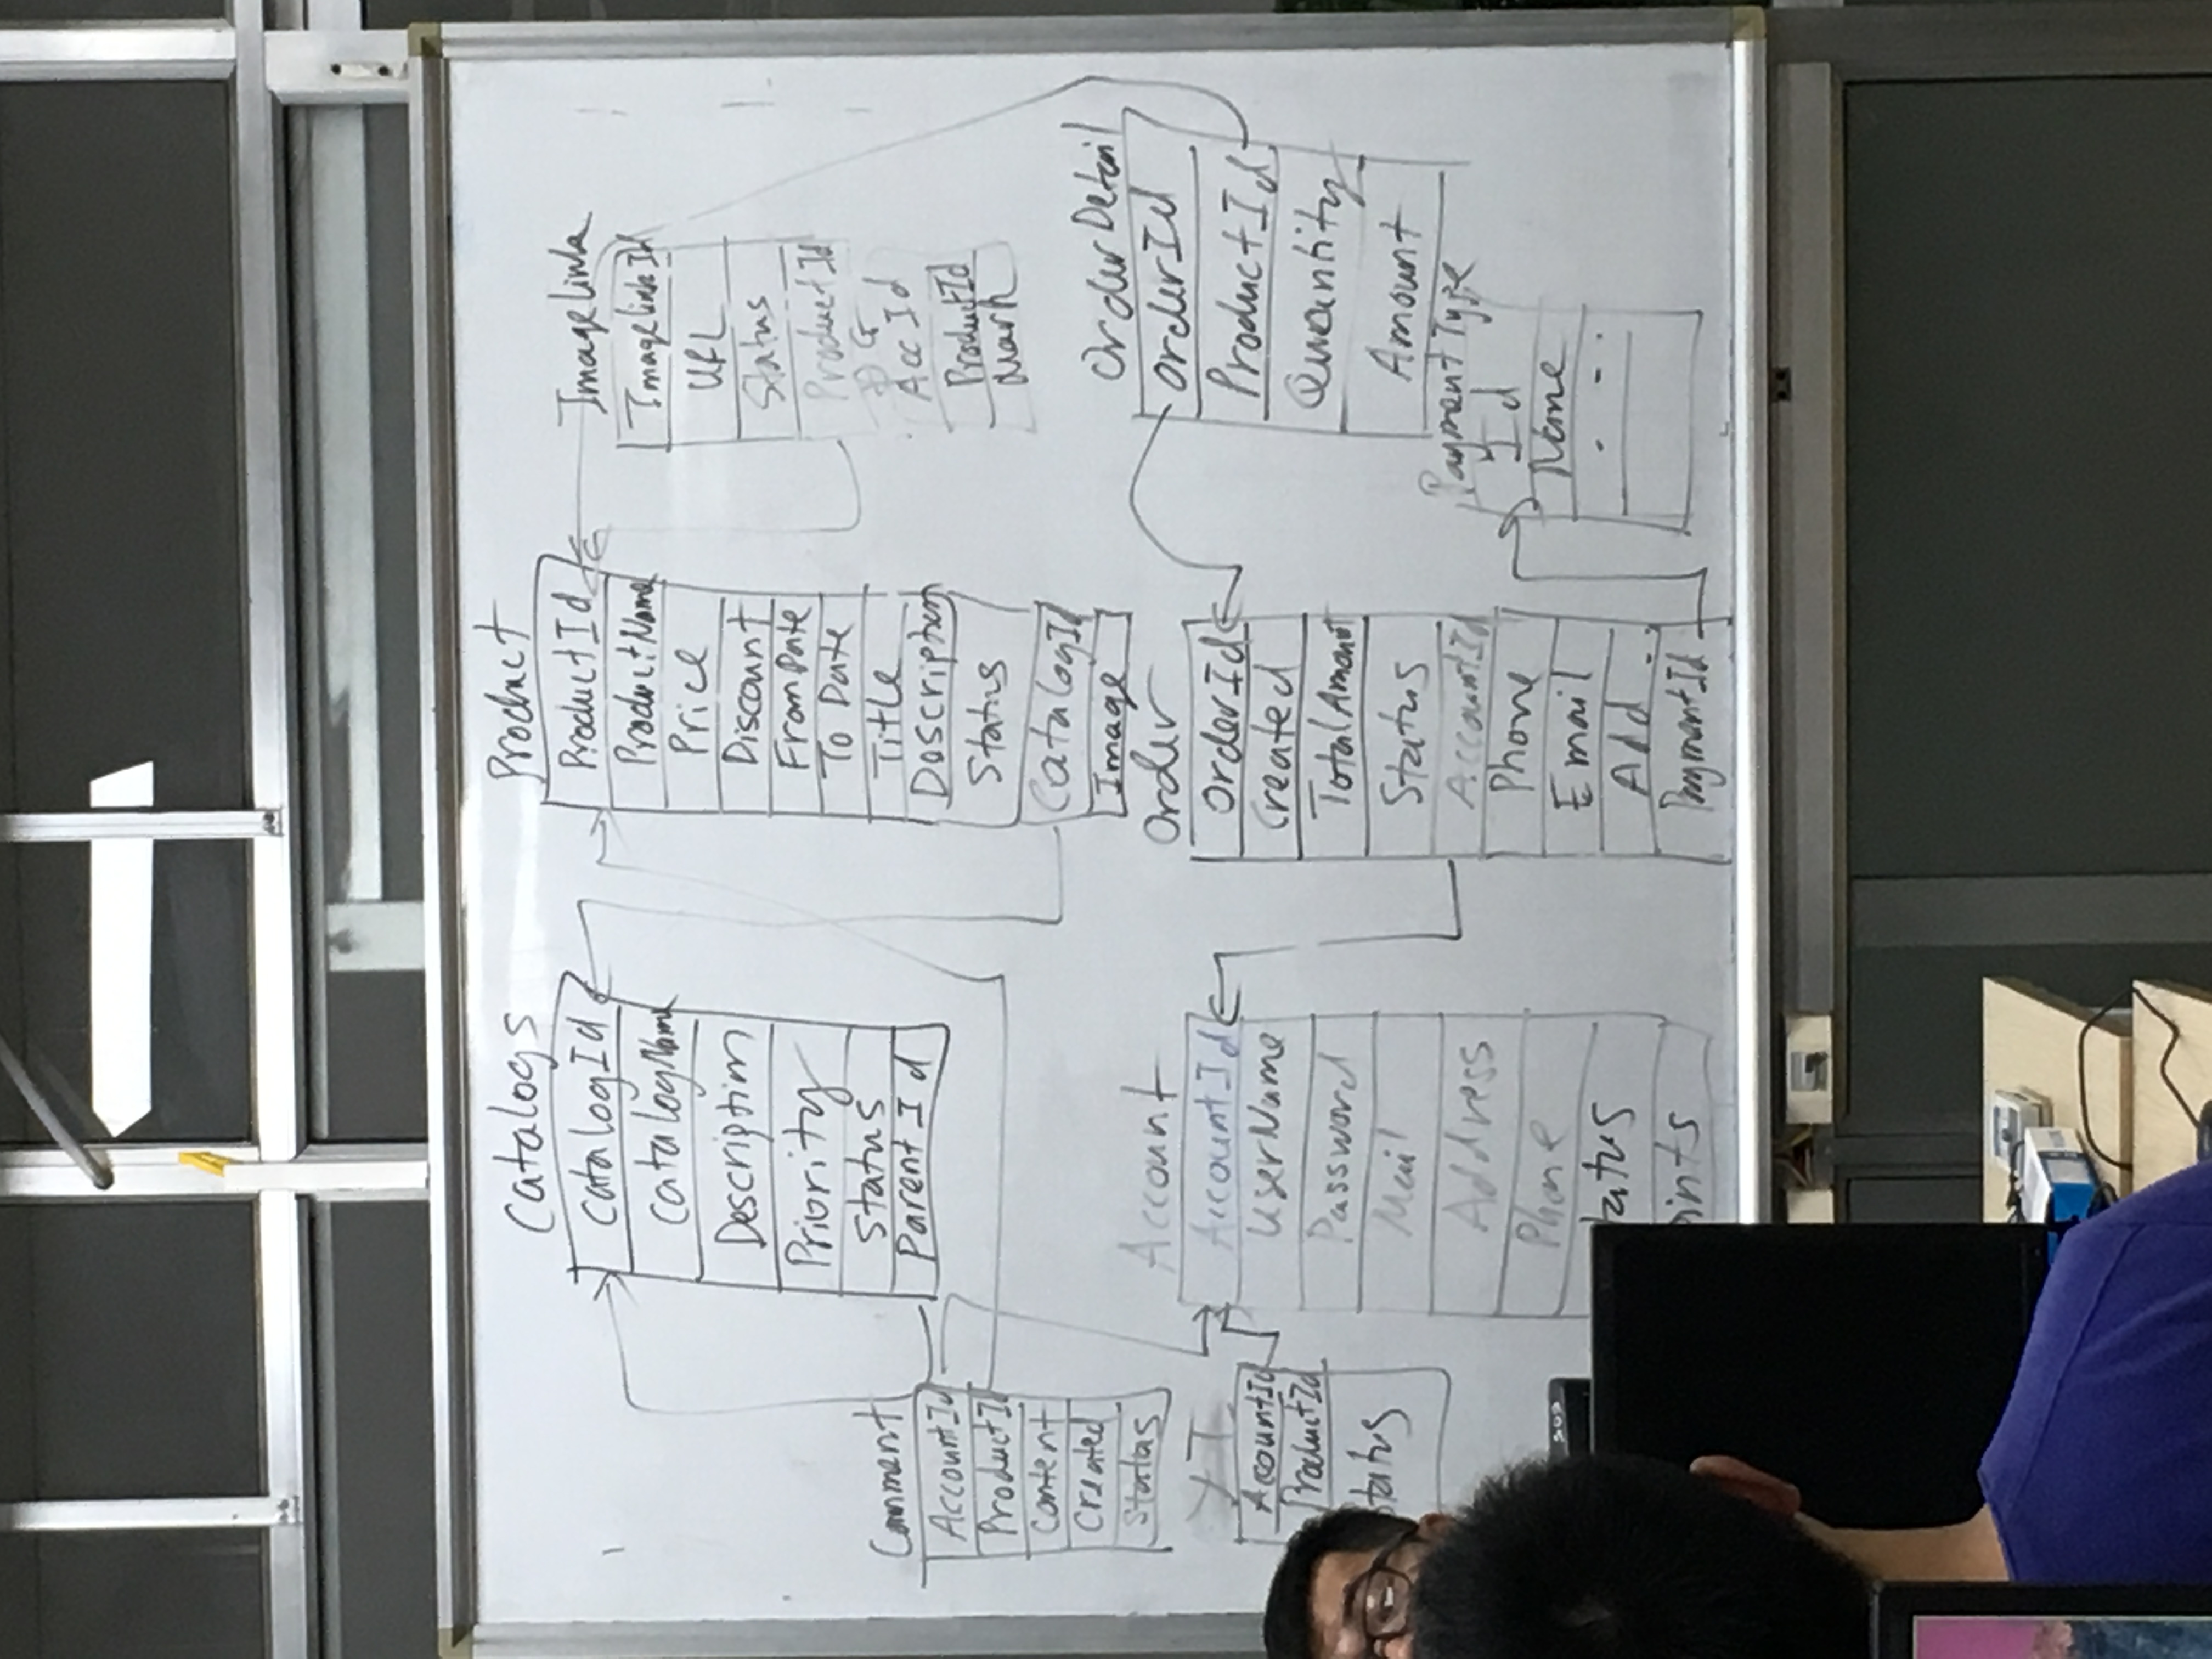 Catalogs
CatalogId
CatalogName
Description
Priority
Status
Parent Id
Product
ProductId
ProductName
Price
Discount
FromDate
To Date
Title
Description
Status
CatalogId
Image
Imagelink
ImagelinkId
URL
Status
ProductId
ĐG
AccId
ProductId
Mark
Comment
AccountId
ProductId
Content
Created
Status
YT
AccountId
ProductId
tatus
Account
AccountId
UserName
Password
Mail
Address
Phone
tatus
ints
Order
OrderId
Created
TotalAmount
Status
AccountId
Phone
Email
Add...
PaymentId
OrderDetail
OrderId
ProductId
Quantity
Amount
PaymentType
Id
Name
- - .